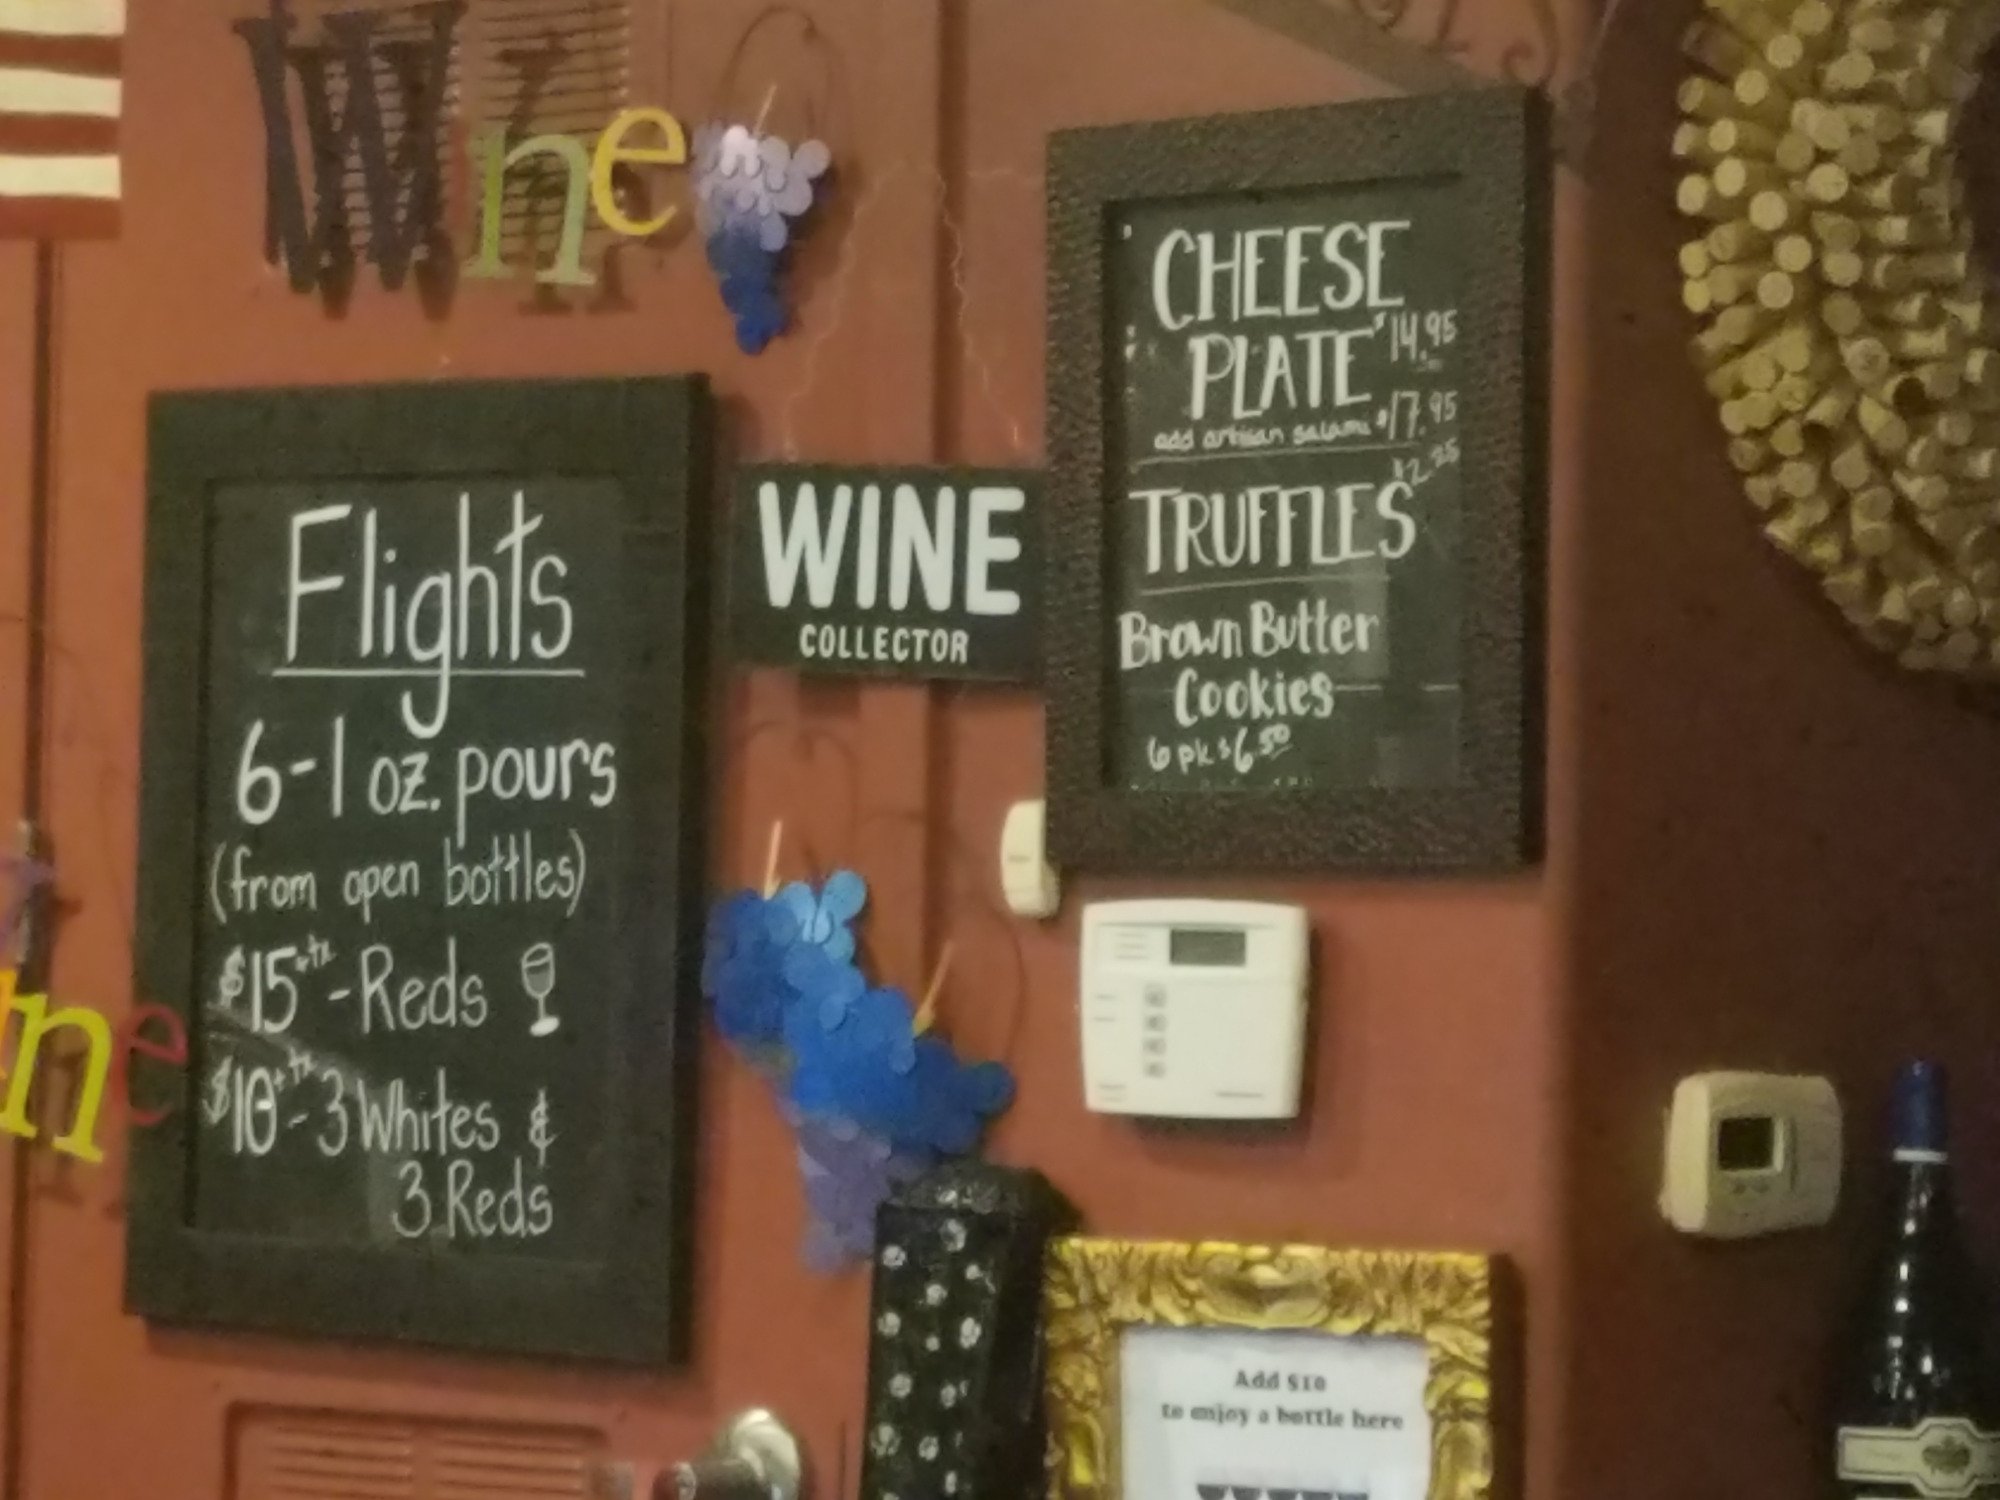 Wine
Flights
6-1 oz. pours
(from open bottles)
$15+tx - Reds
$10+tx - 3 Whites &
3 Reds
ne
WINE
COLLECTOR
CHEESE
PLATE $14.95
add artisan salami $17.95
$2.25
TRUFFLES
Brown Butter
Cookies
6 pk $6.50
Add $10
to enjoy a bottle here